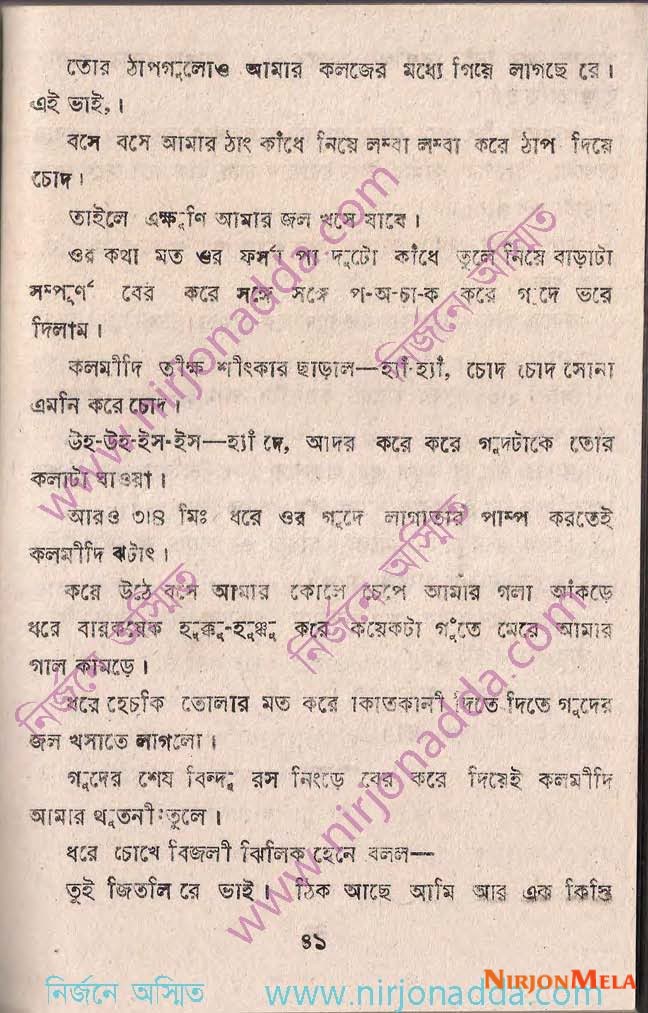 তোর ঠাপগুলোও আমার কলজের মধ্যে গিয়ে লাগছে রে।
এই ভাই,।
বসে বসে আমার ঠাং কাঁধে নিয়ে লম্বা লম্বা করে ঠাপ দিয়ে
চোদ।
তাইলে এক্ষুণি আমার জল খসে যাবে।
ওর কথা মত ওর ফর্সা পা দুটো কাঁধে তুলে নিয়ে বাড়াটা
সম্পূর্ণ বের করে সঙ্গে সঙ্গে প-অ-চা-ক করে গুদে ভরে
দিলাম।
কলমীদি তীক্ষ শীৎকার ছাড়াল—হ্যাঁ-হ্যাঁ, চোদ চোদ সোনা
এমনি করে চোদ।
উহ-উহ-ইস-ইস—হ্যাঁ দে, আদর করে করে গুদটাকে তোর
কলাটা খাওয়া।
আরও ৩।৪ মিঃ ধরে ওর গুদে লাগাতার পাম্প করতেই
কলমীদি ঝটাৎ।
করে উঠে বসে আমার কোলে চেপে আমার গলা আঁকড়ে
ধরে বারকয়েক করে কয়েকটা গুঁতে মেরে আমার
গাল কামড়ে।
ধরে হেচকি তোলার মত করে দিতে দিতে গুদের
জল খসাতে লাগলো।
গুদের শেষ বিন্দু রস নিংড়ে বের করে দিয়েই কলমীদি
আমার থুতনী তুলে।
ধরে চোখে বিজলী ঝিলিক হেনে বলল—
তুই জিতলি রে ভাই। ঠিক আছে আমি আর এক কিস্তি
৪১
নির্জনে অস্মিত www.nirjonadda.com
NIRJONMELA
www.nirjonadda.com
নির্জনে অস্মিত
নির্জনে অস্মিত
নির্জনে অস্মিত
www.nirjonadda.com